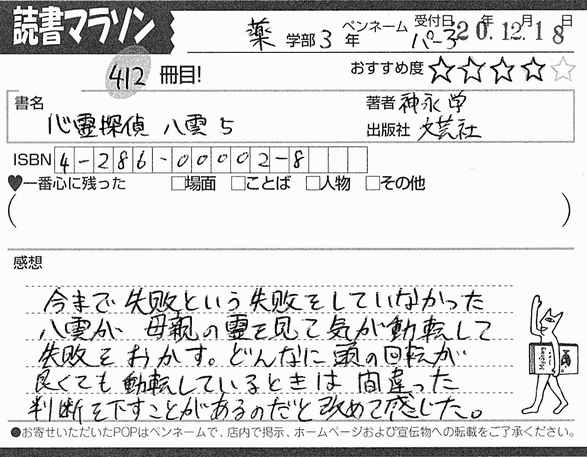 読書マラソン
薬 学部 3 年 ペンネーム パーる 受付日 20年 12月 18日
412 冊目! おすすめ度 ☆☆☆☆☆
書名 著者 神永 学
心霊探偵 八雲 5 出版社 文芸社
ISBN 4-286-00002-8
♥一番心に残った □場面 □ことば □人物 □その他
( )
感想
今まで失敗という失敗をしていなかった
八雲が 母親の霊を見て気が動転して
失敗をおかす。どんなに頭の回転が
良くても動転しているときは 間違った
判断を下すことがあるのだと改めて感じた。
●お寄せいただいたPOPはペンネームで、店内で掲示、ホームページおよび宣伝物への転載をご了承ください。